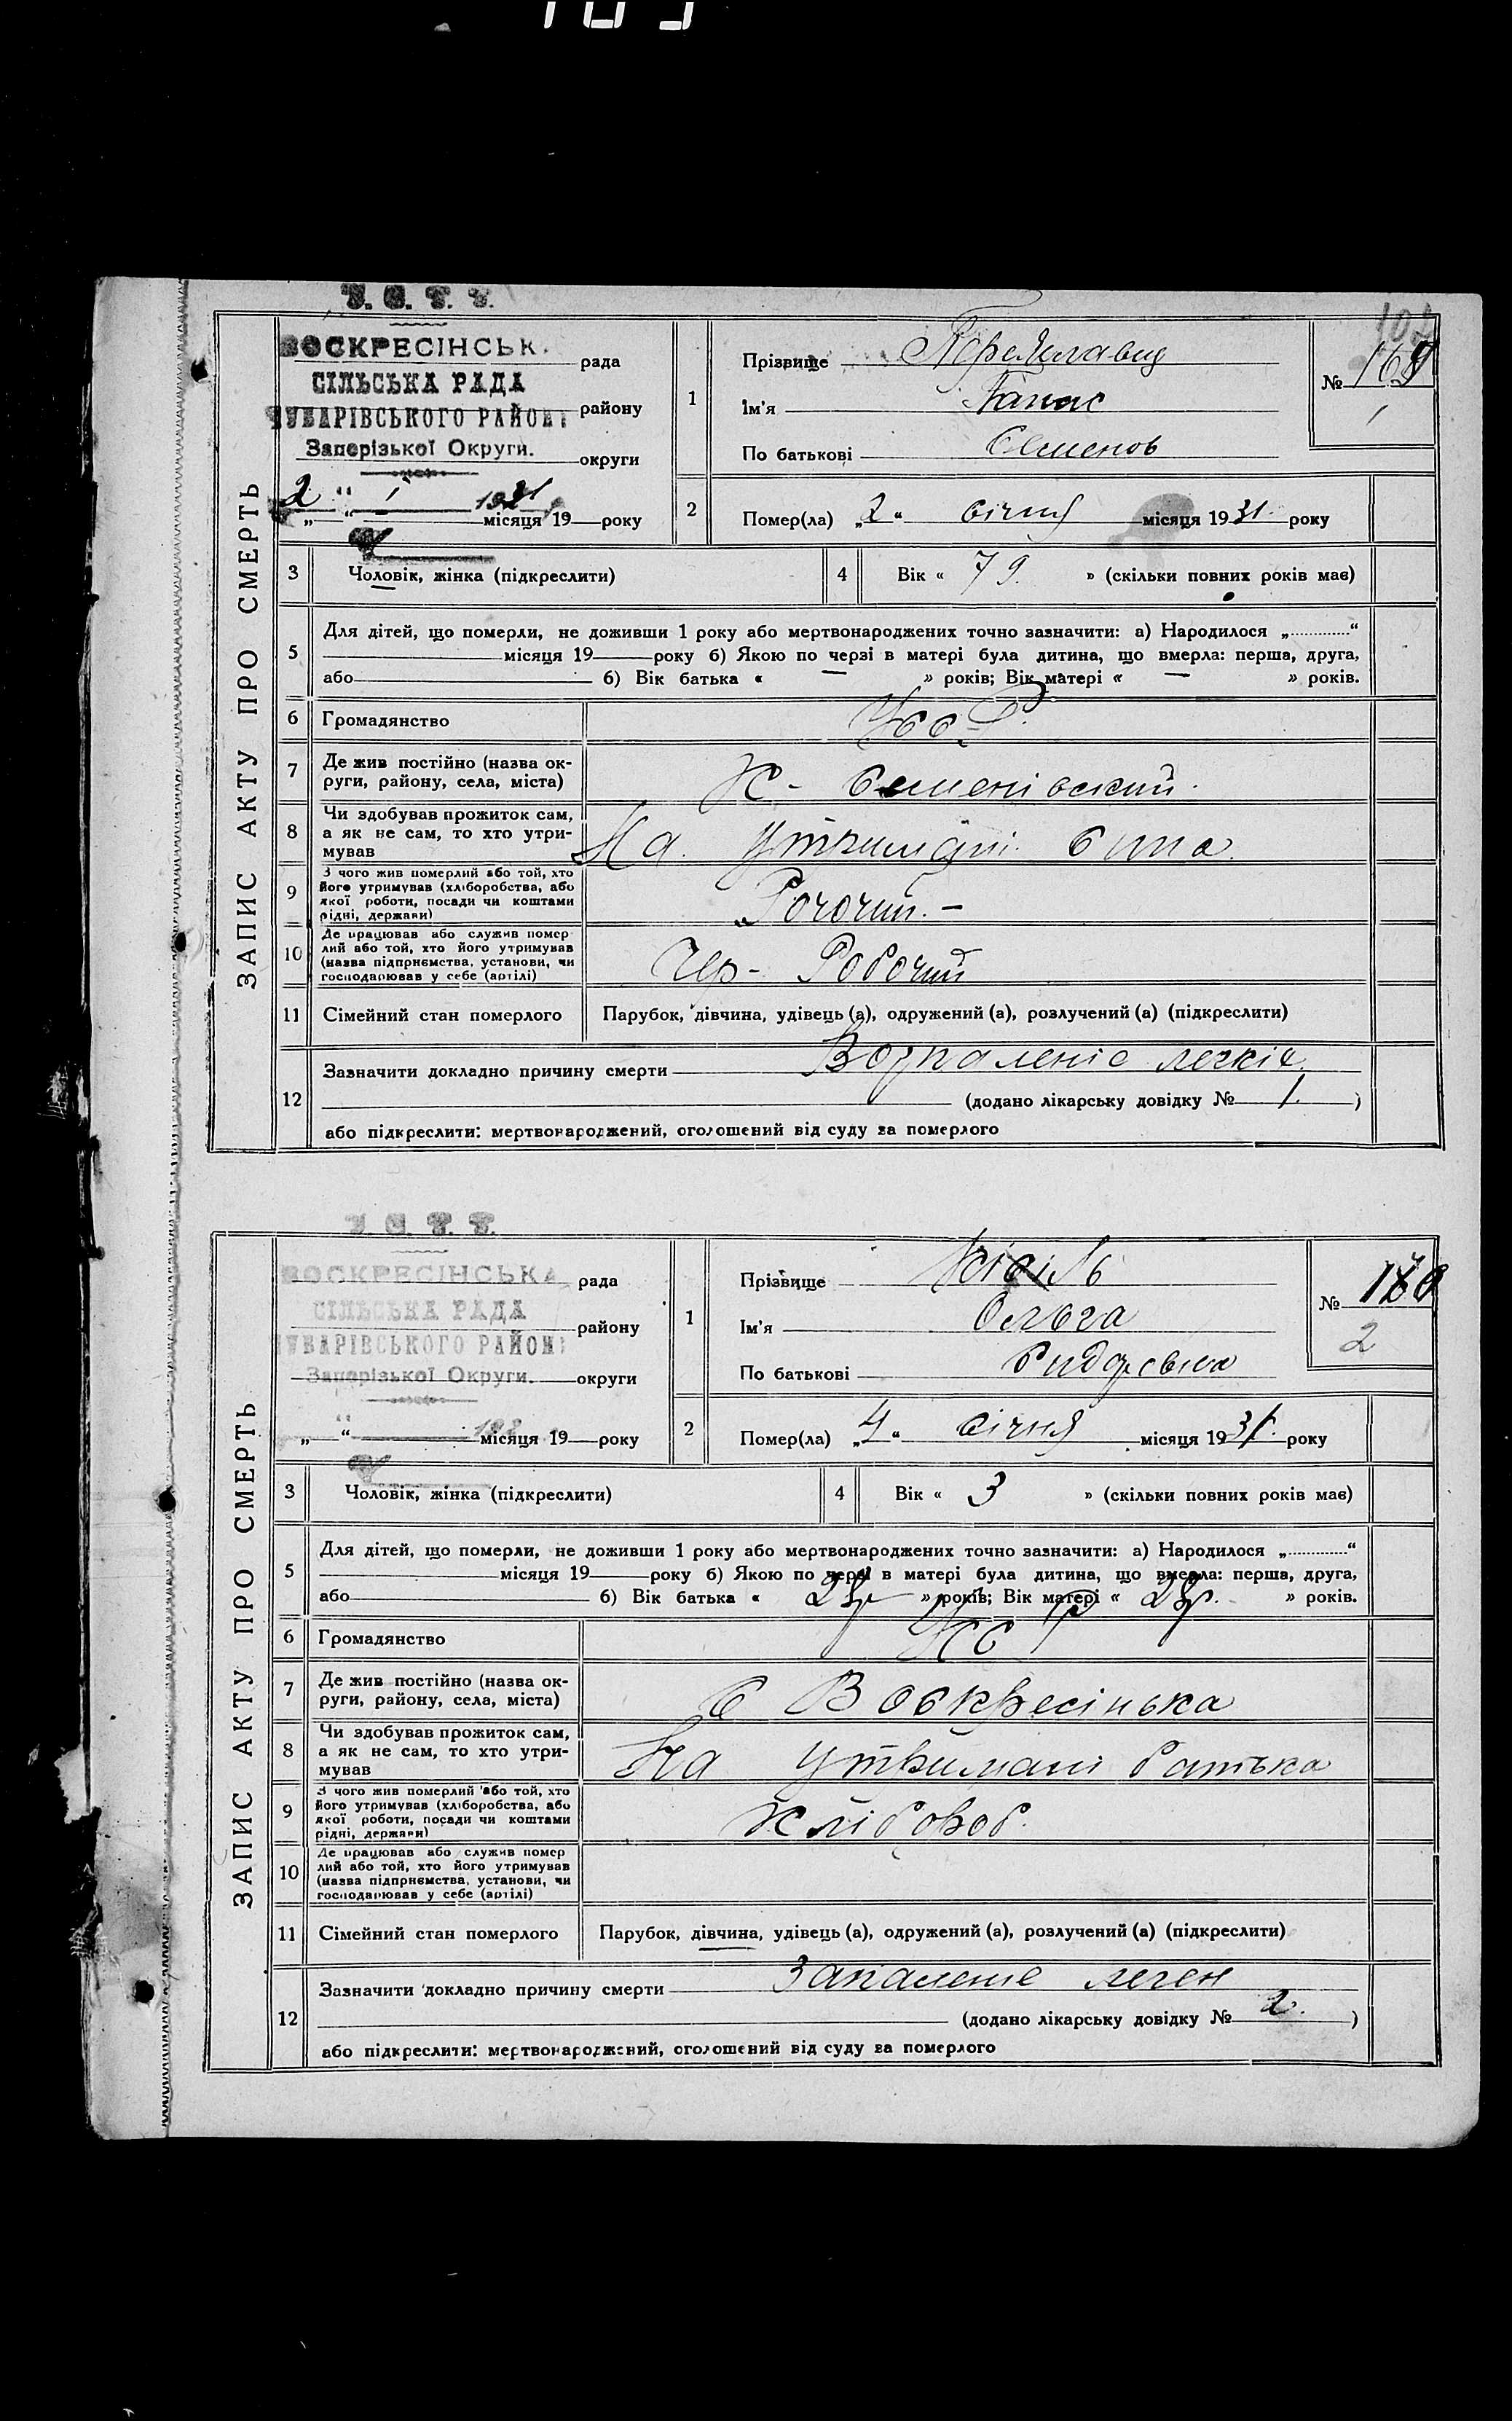 У. С. Р. Р.
ВОСКРЕСІНСЬК. рада
СІЛЬСЬКА РАДА
ЧУБАРІВСЬКОГО РАЙОНУ району
Запорізької Округи. округи
2 " 1 1931
„ “ місяця 19 року
ЗАПИС АКТУ ПРО СМЕРТЬ
1
Прізвище
Ім'я Панас
По батькові Семенов
№ 169
1
2
Помер(ла) „2“ січня місяця 1931 року
3 Чоловік, жінка (підкреслити)
4 Вік « 79. » (скільки повних років має)
5 Для дітей, що померли, не доживши 1 року або мертвонароджених точно зазначити: а) Народилося „............“
місяця 19 року б) Якою по черзі в матері була дитина, що вмерла: перша, друга,
або б) Вік батька « — » років; Вік матері « — » років.
6 Громадянство УССР.
7 Де жив постійно (назва ок-
руги, району, села, міста)
Х - Семенівский.
8 Чи здобував прожиток сам,
а як не сам, то хто утри-
мував
На утримані сина.
9 З чого жив померлий або той, хто
його утримував (хліборобства, або
якої роботи, посади чи коштами
рідні, держави)
10 Де працював або служив помер
лий або той, хто його утримував
(назва підприємства, установи, чи
господарював у себе (артілі)
Чер- Робочий
11 Сімейний стан померлого Парубок, дівчина, удівець (а), одружений (а), розлучений (а) (підкреслити)
12 Зазначити докладно причину смерти Возпаленіе легкіх.
(додано лікарську довідку № 1. )
або підкреслити: мертвонароджений, оголошений від суду за померлого
У. С. Р. Р.
ВОСКРЕСІНСЬКА рада
СІЛЬСЬКА РАДА
ЧУБАРІВСЬКОГО РАЙОНУ району
Запорізької Округи. округи
„ “ 192 місяця 19 року
ЗАПИС АКТУ ПРО СМЕРТЬ
1
Прізвище
Ім'я Ольга
По батькові Сидоровна
№ 170
2
2
Помер(ла) „4“ січня місяця 1931. року
3 Чоловік, жінка (підкреслити)
4 Вік « 3 » (скільки повних років має)
5 Для дітей, що померли, не доживши 1 року або мертвонароджених точно зазначити: а) Народилося „............“
місяця 19 року б) Якою по черзі в матері була дитина, що вмерла: перша, друга,
або б) Вік батька « » років; Вік матері « » років.
6 Громадянство УСС Р
7 Де жив постійно (назва ок-
руги, району, села, міста)
С Воскресінька
8 Чи здобував прожиток сам,
а як не сам, то хто утри-
мував
На утримані батька
9 З чого жив померлий або той, хто
його утримував (хліборобства, або
якої роботи, посади чи коштами
рідні, держави)
Хлібороб.
10 Де працював або служив помер
лий або той, хто його утримував
(назва підприємства, установи, чи
господарював у себе (артілі)
11 Сімейний стан померлого Парубок, дівчина, удівець (а), одружений (а), розлучений (а) (підкреслити)
12 Зазначити докладно причину смерти Запаленіе леген
(додано лікарську довідку № 2. )
або підкреслити: мертвонароджений, оголошений від суду за померлого